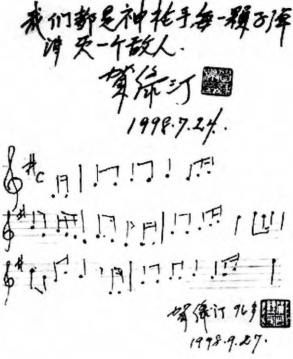 我们都是神枪手每一颗子弹
消灭一个敌人.
贺绿汀
1998.7.24.
C
贺绿汀 96岁
1998.9.27.